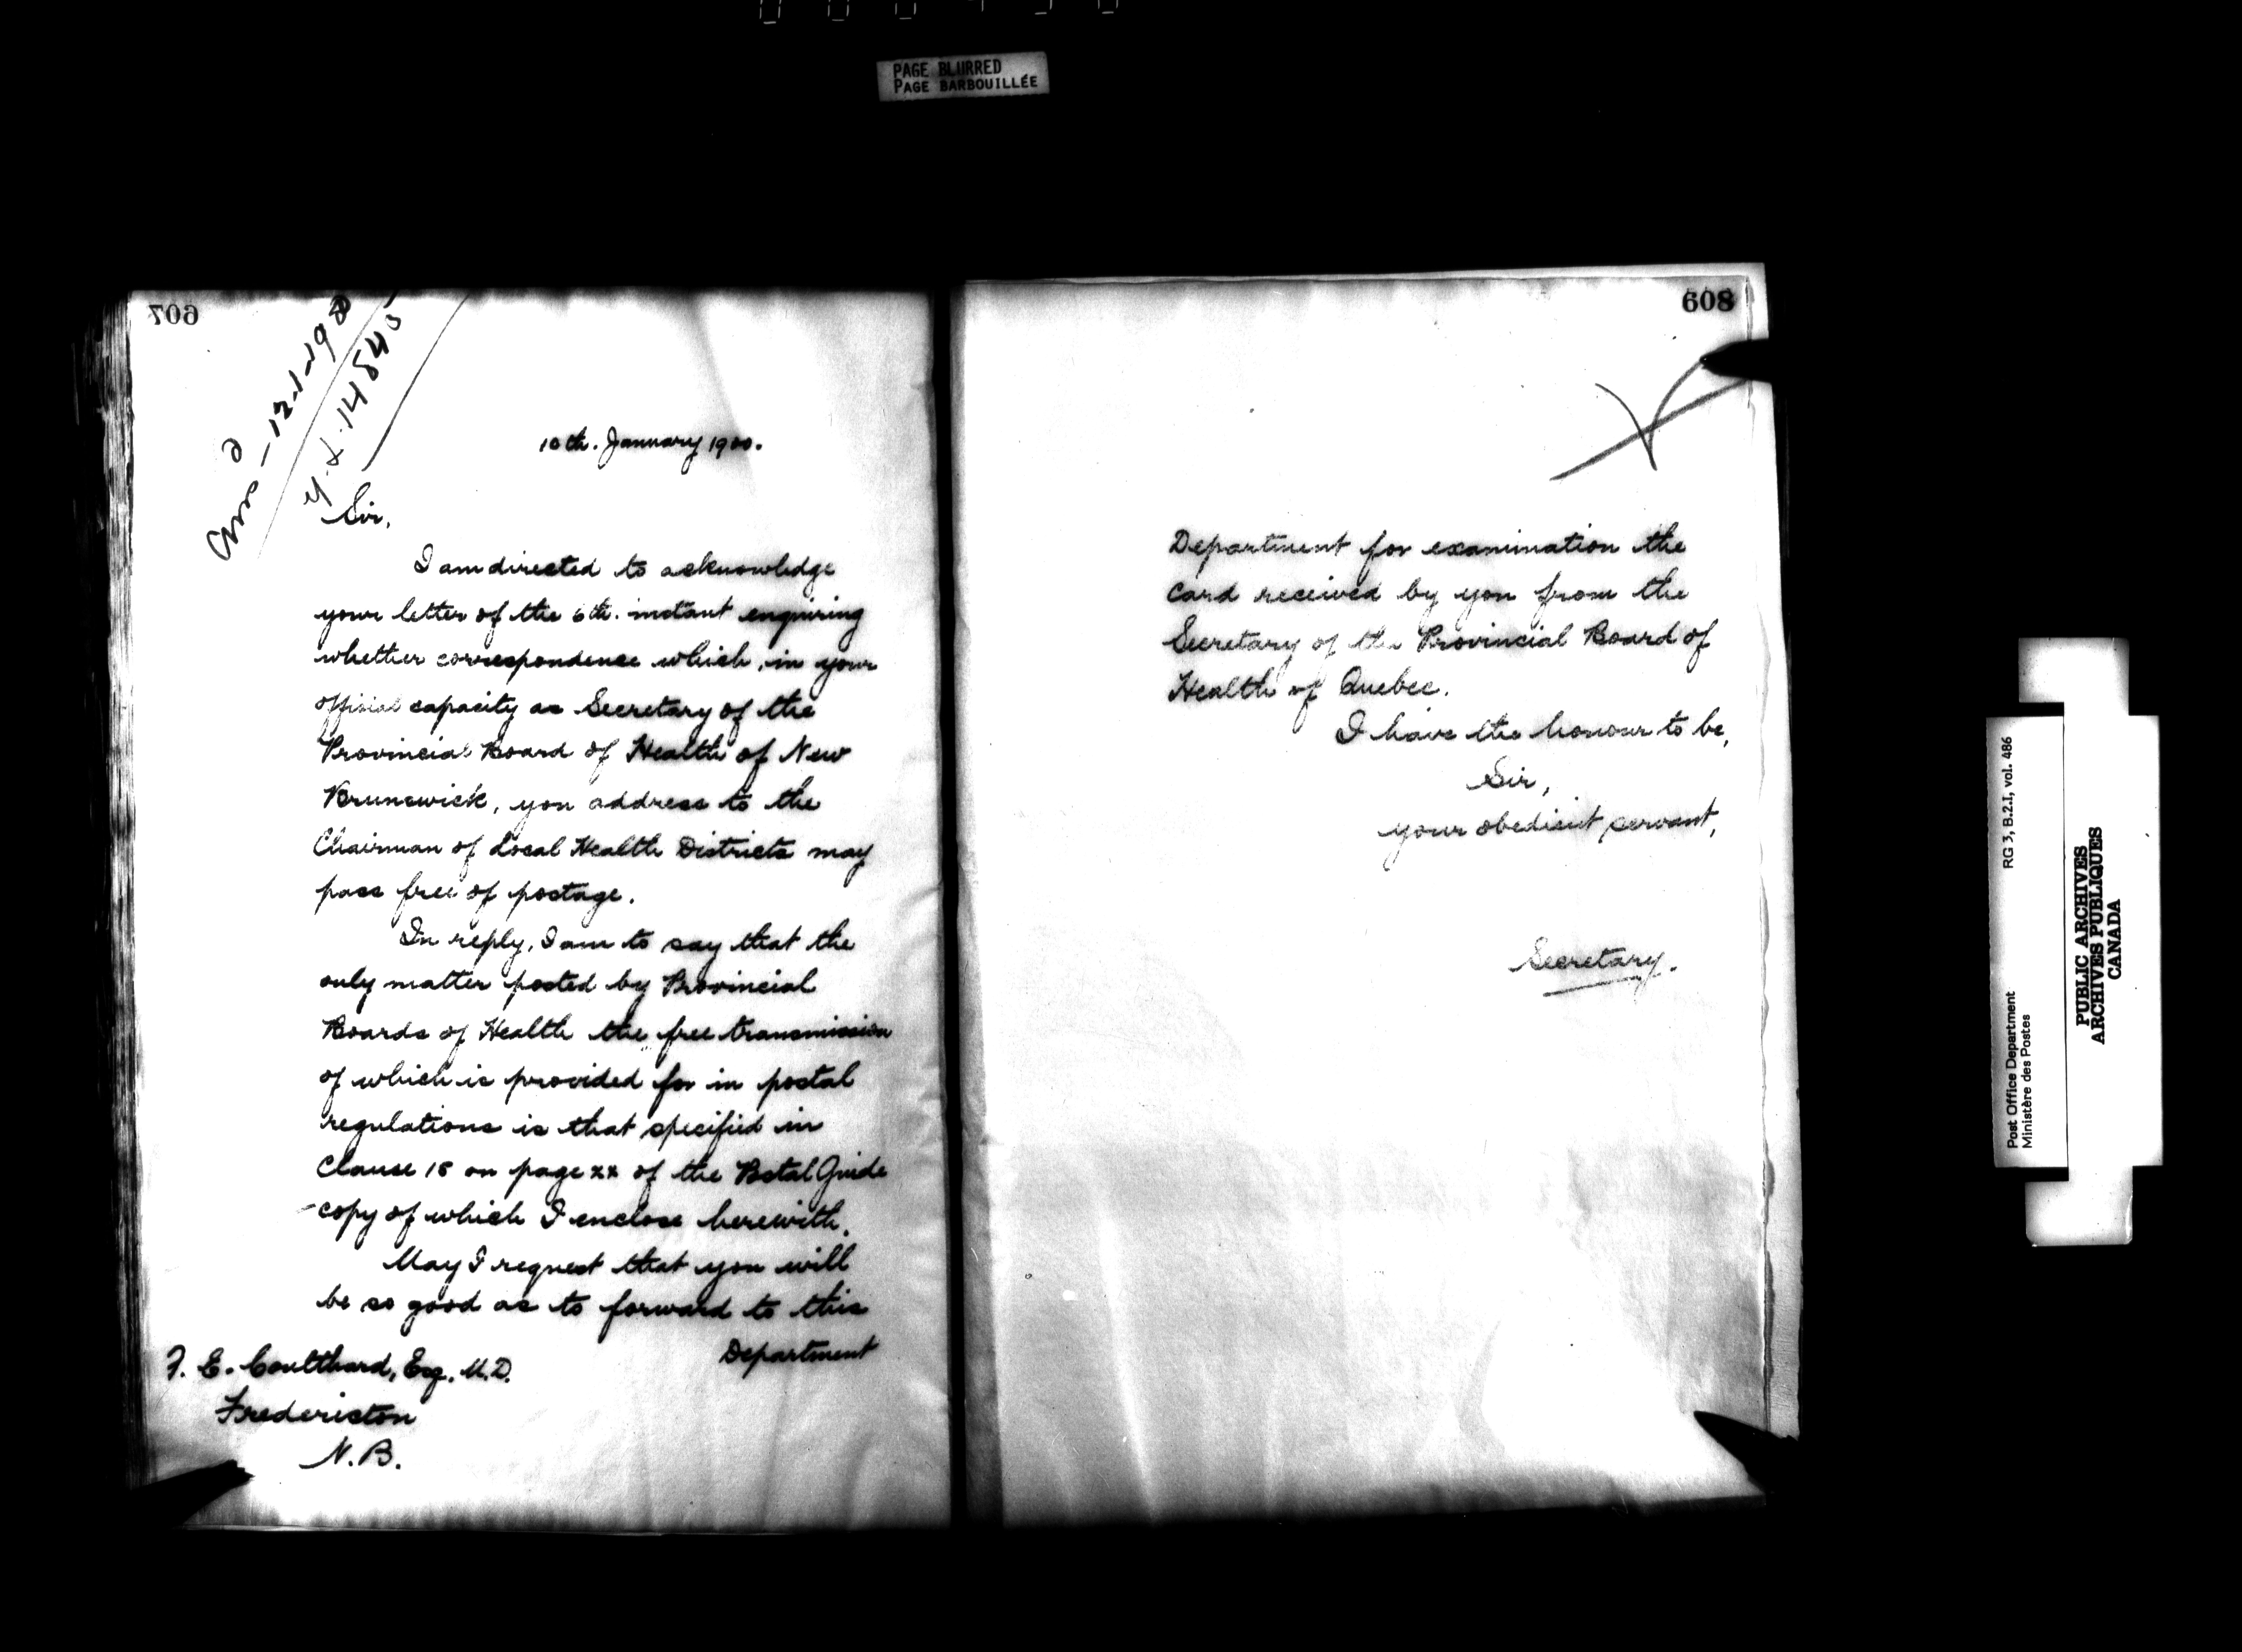 PAGE BLURRED
PAGE BARBOUILLÉE
607
10th. January 1900.
Sir,
I am directed to acknowledge
your letter of the 6th. instant enquiring
whether correspondence which, in your
official capacity as Secretary of the
Provincial Board of Health of New
Brunswick, you address to the
Chairman of Local Health Districts may
pass free of postage.
In reply, I am to say that the
only matter posted by Provincial
Boards of Health the free transmission
of which is provided for in postal
regulations is that specified in
Clause 18 on page xx of the Postal Guide
copy of which I enclose herewith.
May I request that you will
be so good as to forward to this
Department
F. E. Coulthard, Esq. M.D.
Fredericton
N.B.
608
Department for examination the
card received by you from the
Secretary of the Provincial Board of
Health of Quebec.
I have the honour to be,
Sir,
your obedient servant,
Secretary.
RG 3, B.2.I, vol. 486
Post Office Department
Ministère des Postes
PUBLIC ARCHIVES
ARCHIVES PUBLIQUES
CANADA